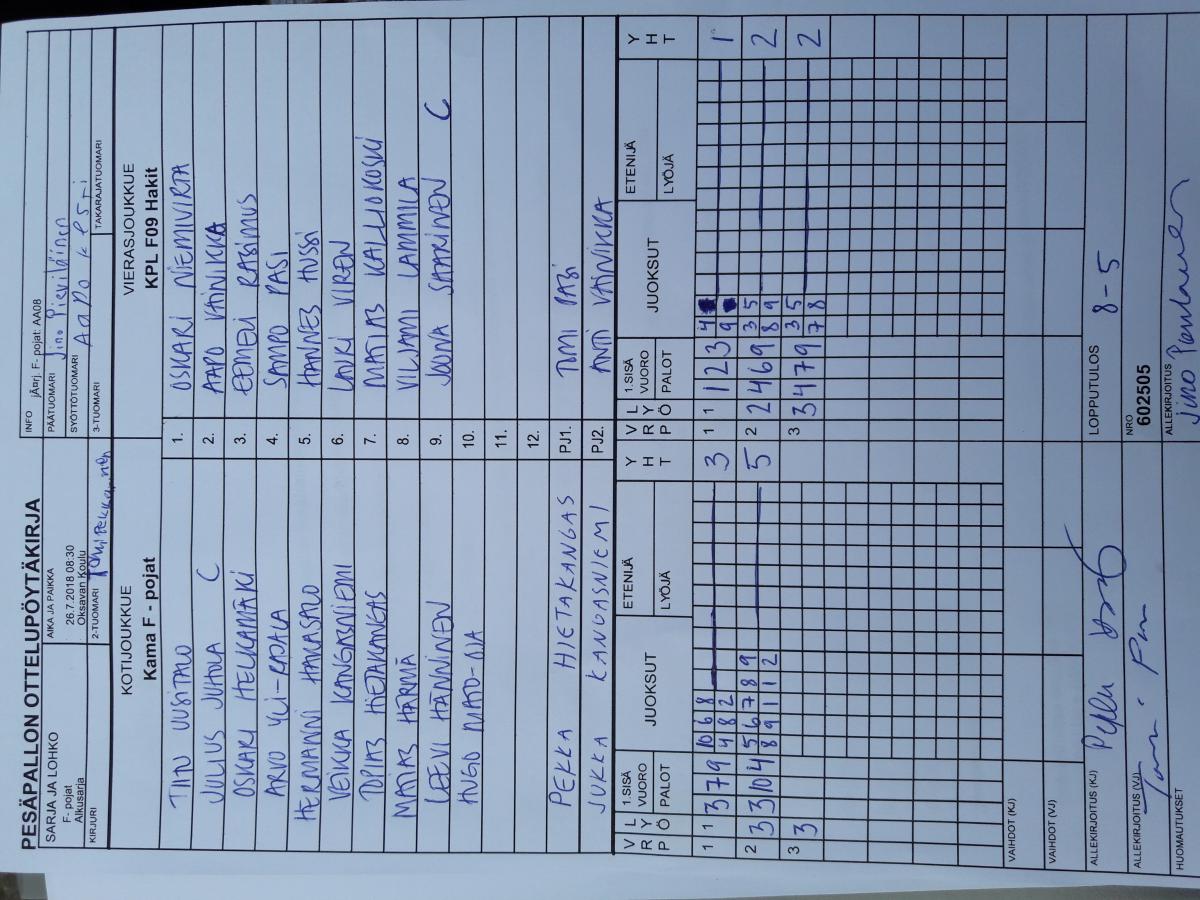 PESÄPALLON OTTELUPÖYTÄKIRJA
SARJA JA LOHKO
F- pojat
Alkusarja
KIRJURI
AIKA JA PAIKKA
26.7.2018 08:30
Oksavan Koulu
2-TUOMARI
INFO jÄ¤rj. F- pojat: AA08
PÄÄTUOMARI
SYÖTTÖTUOMARI
3-TUOMARI TAKARAJATUOMARI
KOTIJOUKKUE
Kama F - pojat
VIERASJOUKKUE
KPL F09 Hakit
TIITU UUSITALO 1. OSKARI NIEMIVIRTA
JULIUS JUHOLA C 2. AAPO VAINIKKA
OSKARI HELKAMÄKI 3. EEMELI RASIMUS
ARVO YLI-KOTALA 4. SAMPO PASI
HERMANNI HAKASALO 5. HANNES HUSSI
VEIKKA KANGASNIEMI 6. LAURI VIREN
TOPIAS HIETAKANGAS 7. MATIAS KALLIOKOSKI
MATIAS HÄRMÄ 8. VILJAMI LAMMILA
LEEVI HÄNNINEN 9. JOONA SAARINEN C
HUGO MATO-OJA 10.
11.
12.
PEKKA HIETAKANGAS PJ1. TOMI PASI
JUKKA KANGASNIEMI PJ2. ANTTI VAINIKKA
V R P L Y Ö 1.SISÄ VUORO PALOT JUOKSUT ETENIJÄ LYÖJÄ Y H T V R P L Y Ö 1.SISÄ VUORO PALOT JUOKSUT ETENIJÄ LYÖJÄ Y H T
1 1 3 7 9 10 6 8 3 1 1 1 2 3 4 1
4 8 2 9
2 3 3 10 4 5 6 7 8 9 5 2 2 4 6 9 3 5 2
8 9 1 1 2 8 9
3 3 3 3 4 7 9 3 5 2
7 8
VAIHDOT (KJ)
VAIHDOT (VJ)
ALLEKIRJOITUS (KJ) LOPPUTULOS 8-5
ALLEKIRJOITUS (VJ) NRO
602505
HUOMAUTUKSET ALLEKIRJOITUS